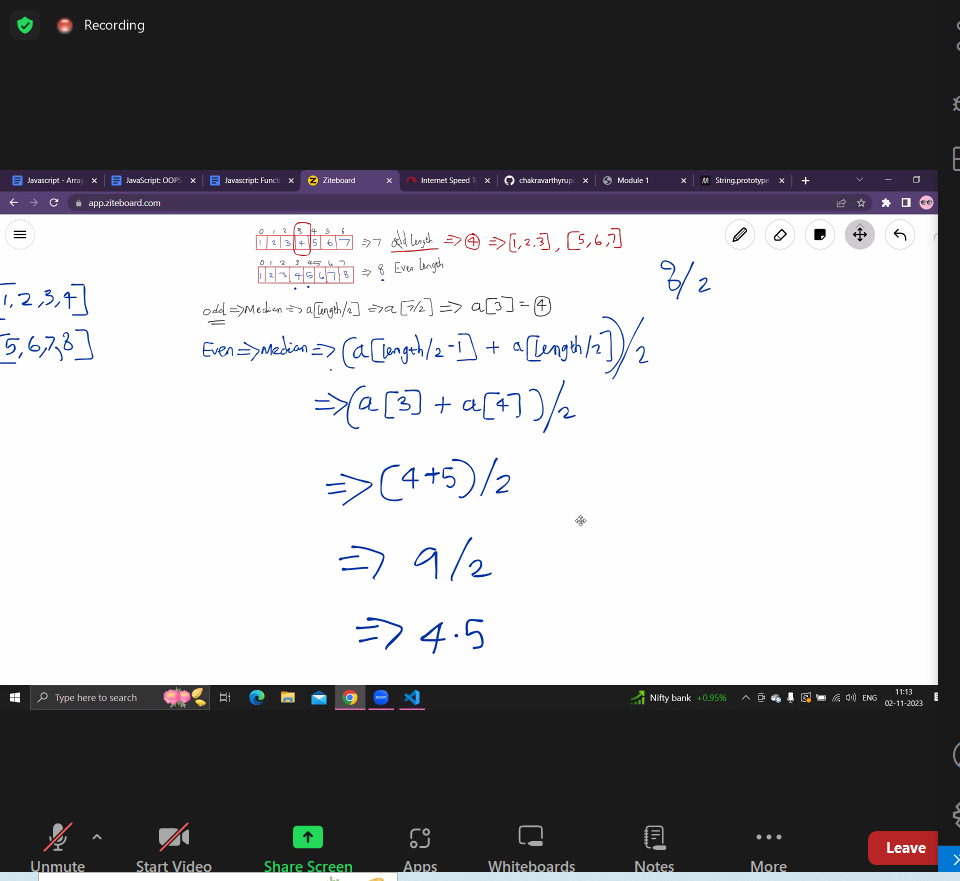 Recording
Javascript - Array
JavaScript: OOPS
Javascript: Functi
Ziteboard
Internet Speed T
chakravarthyrup
Module 1
String.prototype
app.ziteboard.com
0 1 2 3 4 5 6
1 2 3 4 5 6 7 => 7 odd length => 4 => [1,2,3], [5,6,7]
0 1 2 3 4 5 6 7
1 2 3 4 5 6 7 8 => 8 Even length
8/2
1,2,3,4]
5,6,7,8]
odd => Median => a[length/2] => a[7/2] => a[3] = 4
Even => Median => (a[length/2-1] + a[length/2])/2
=> (a[3] + a[4])/2
=> (4+5)/2
=> 9/2
=> 4.5
Type here to search
Nifty bank +0.95%
ENG
11:13
02-11-2023
Unmute
Start Video
Share Screen
Apps
Whiteboards
Notes
More
Leave